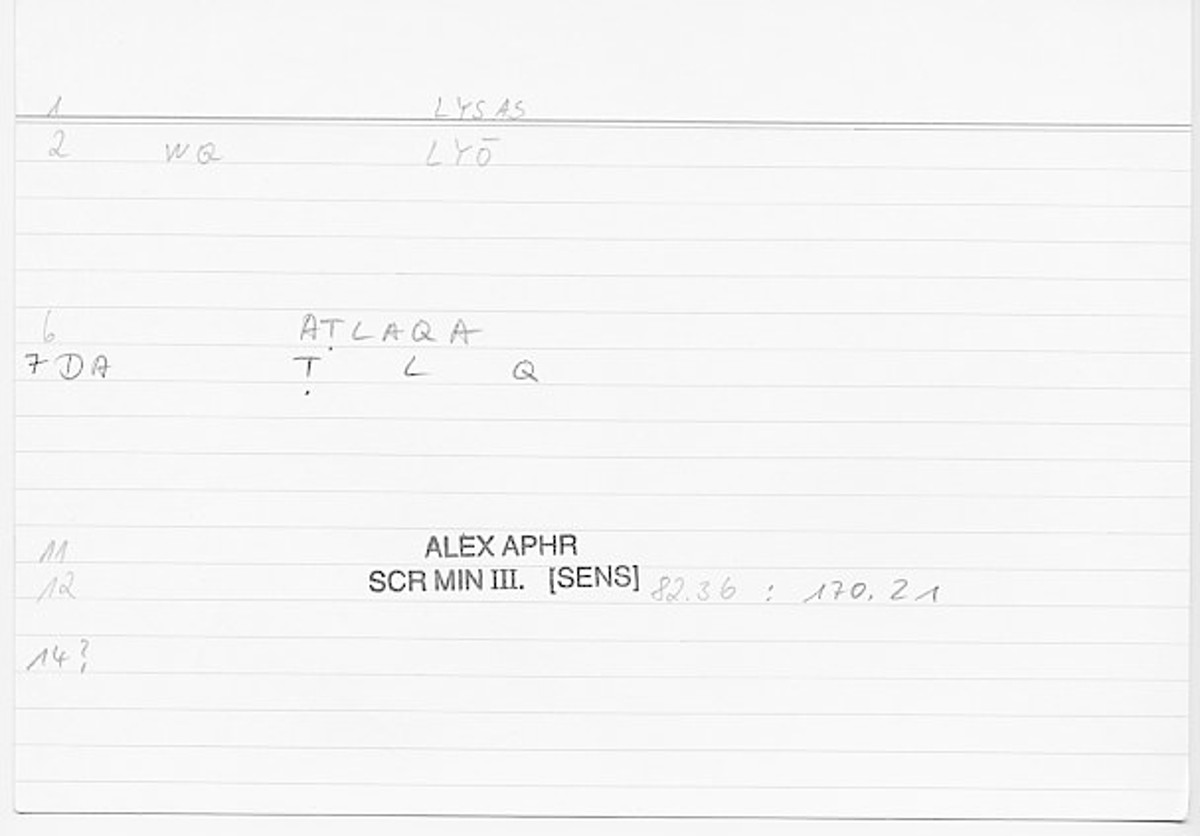 1 LYSAS
2 WQ LYŌ
6 AṬLAQA
7 DA Ṭ L Q
11 ALEX APHR
12 SCR MIN III. [SENS] 82.36 : 170.21
14?